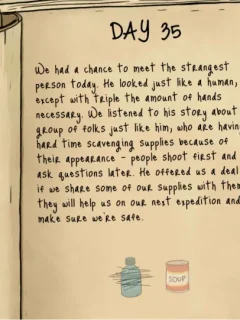 DAY 35
We had a chance to meet the strangest
person today. He looked just like a human,
except with triple the amount of hands
necessary. We listened to his story about
group of folks just like him, who are having
hard time scavenging supplies because of
their appearance - people shoot first and
ask questions later. He offered us a deal
if we share some of our supplies with them
they will help us on our next expedition and
make sure we're safe.
SOUP